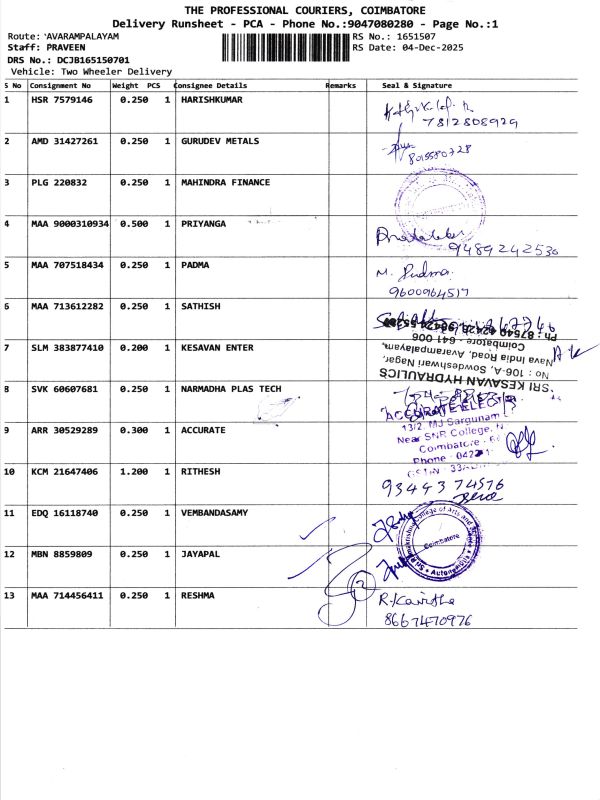 THE PROFESSIONAL COURIERS, COIMBATORE
Delivery Runsheet - PCA - Phone No.:9047080280 - Page No.:1
Route: 'AVARAMPALAYAM
RS No.: 1651507
Staff: PRAVEEN
RS Date: 04-Dec-2025
DRS No.: DCJB165150701
Vehicle: Two Wheeler Delivery
S No Consignment No Weight PCS Consignee Details Remarks Seal & Signature
1 HSR 7579146 0.250 1 HARISHKUMAR
7812808929
2 AMD 31427261 0.250 1 GURUDEV METALS
8015580728
3 PLG 220832 0.250 1 MAHINDRA FINANCE
4 MAA 9000310934 0.500 1 PRIYANGA
9489242530
5 MAA 707518434 0.250 1 PADMA
M. Padma.
9600964517
6 MAA 713612282 0.250 1 SATHISH
7 SLM 383877410 0.200 1 KESAVAN ENTER
Coimbatore - 641 006
Nava India Road, Avarampalayam,
No : 106-A, Sowdeshwari Nagar,
SRI KESAVAN HYDRAULICS
8 SVK 60607681 0.250 1 NARMADHA PLAS TECH
9 ARR 30529289 0.300 1 ACCURATE
ACCURATE ELECT
13/2, MJ Sargunam
Near SNR College, N
Coimbatore - 6
Phone - 0422
10 KCM 21647406 1.200 1 RITHESH
9344374576
11 EDQ 16118740 0.250 1 VEMBANDASAMY
College of Arts and
Coimbatore
Autonomous
12 MBN 8859809 0.250 1 JAYAPAL
13 MAA 714456411 0.250 1 RESHMA
R.Kavitha
8667470976